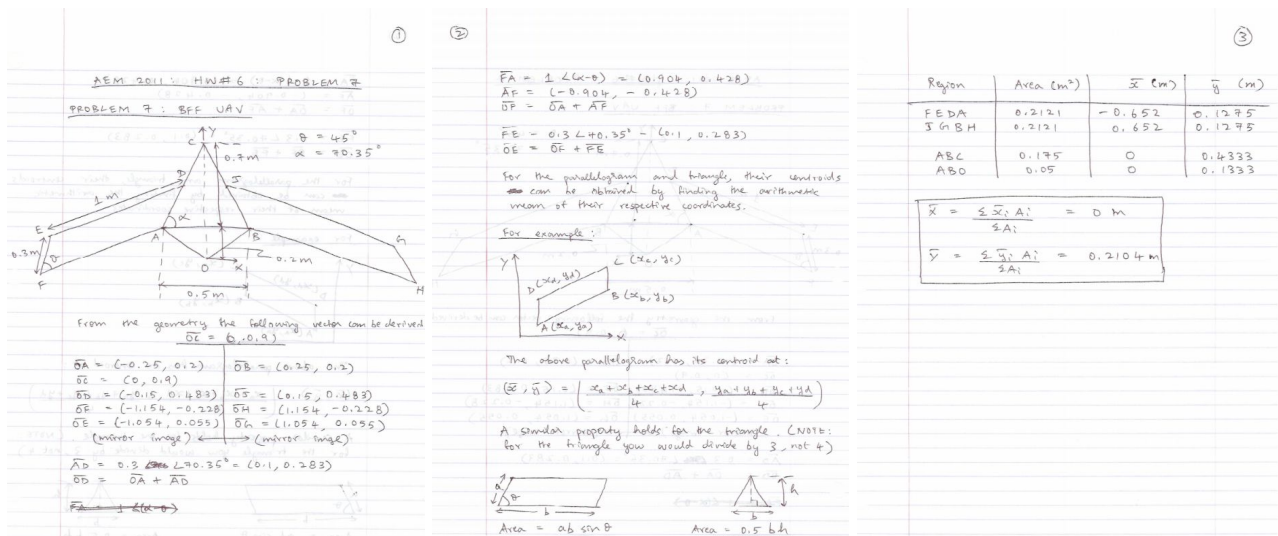 ①
AEM 2011 : HW# 6 : PROBLEM 7
PROBLEM 7 : BFF UAV
θ = 45°
α = 70.35°
C
Y
0.7m
D
J
1 m
E
α
A
B
G
0.3m
θ
O
X
0.2m
F
H
0.5m
From the geometry the following vector can be derived
OC = (0, 0.9)
OA = (-0.25, 0.2) OB = (0.25, 0.2)
OC = (0, 0.9)
OD = (-0.15, 0.483) OJ = (0.15, 0.483)
OF = (-1.154, -0.228) OH = (1.154, -0.228)
OE = (-1.054, 0.055) OG = (1.054, 0.055)
(mirror image) ⟷ (mirror imge)
AD = 0.3 ∠70.35° = (0.1, 0.283)
OD = OA + AD
FA = 1 ∠(α-θ)
②
FA = 1 ∠(α-θ) = (0.904, 0.428)
AF = (-0.904, -0.428)
OF = OA + AF
FE = 0.3 ∠70.35° = (0.1, 0.283)
OE = OF + FE
For the parallelogram and triangle, their centroids
can be obtained by finding the arithmetic
mean of their respective coordinates.
For example :
Y
C (xc, yc)
D (xd, yd)
B (xb, yb)
A (xa, ya)
X
The above parallelogram has its centroid at :
(x̄, ȳ) = ( xa + xb + xc + xd / 4 , ya + yb + yc + yd / 4 )
A similar property holds for the triangle. (NOTE:
for the triangle you would divide by 3, not 4)
a
θ
b
h
b
Area = ab sin θ Area = 0.5 bh
③
Region Area (m²) x̄ (m) ȳ (m)
FEDA 0.2121 -0.652 0.1275
JGBH 0.2121 0.652 0.1275
ABC 0.175 0 0.4333
ABO 0.05 0 0.1333
x̄ = Σ x̄i Ai / Σ Ai = 0 m
ȳ = Σ ȳi Ai / Σ Ai = 0.2104 m